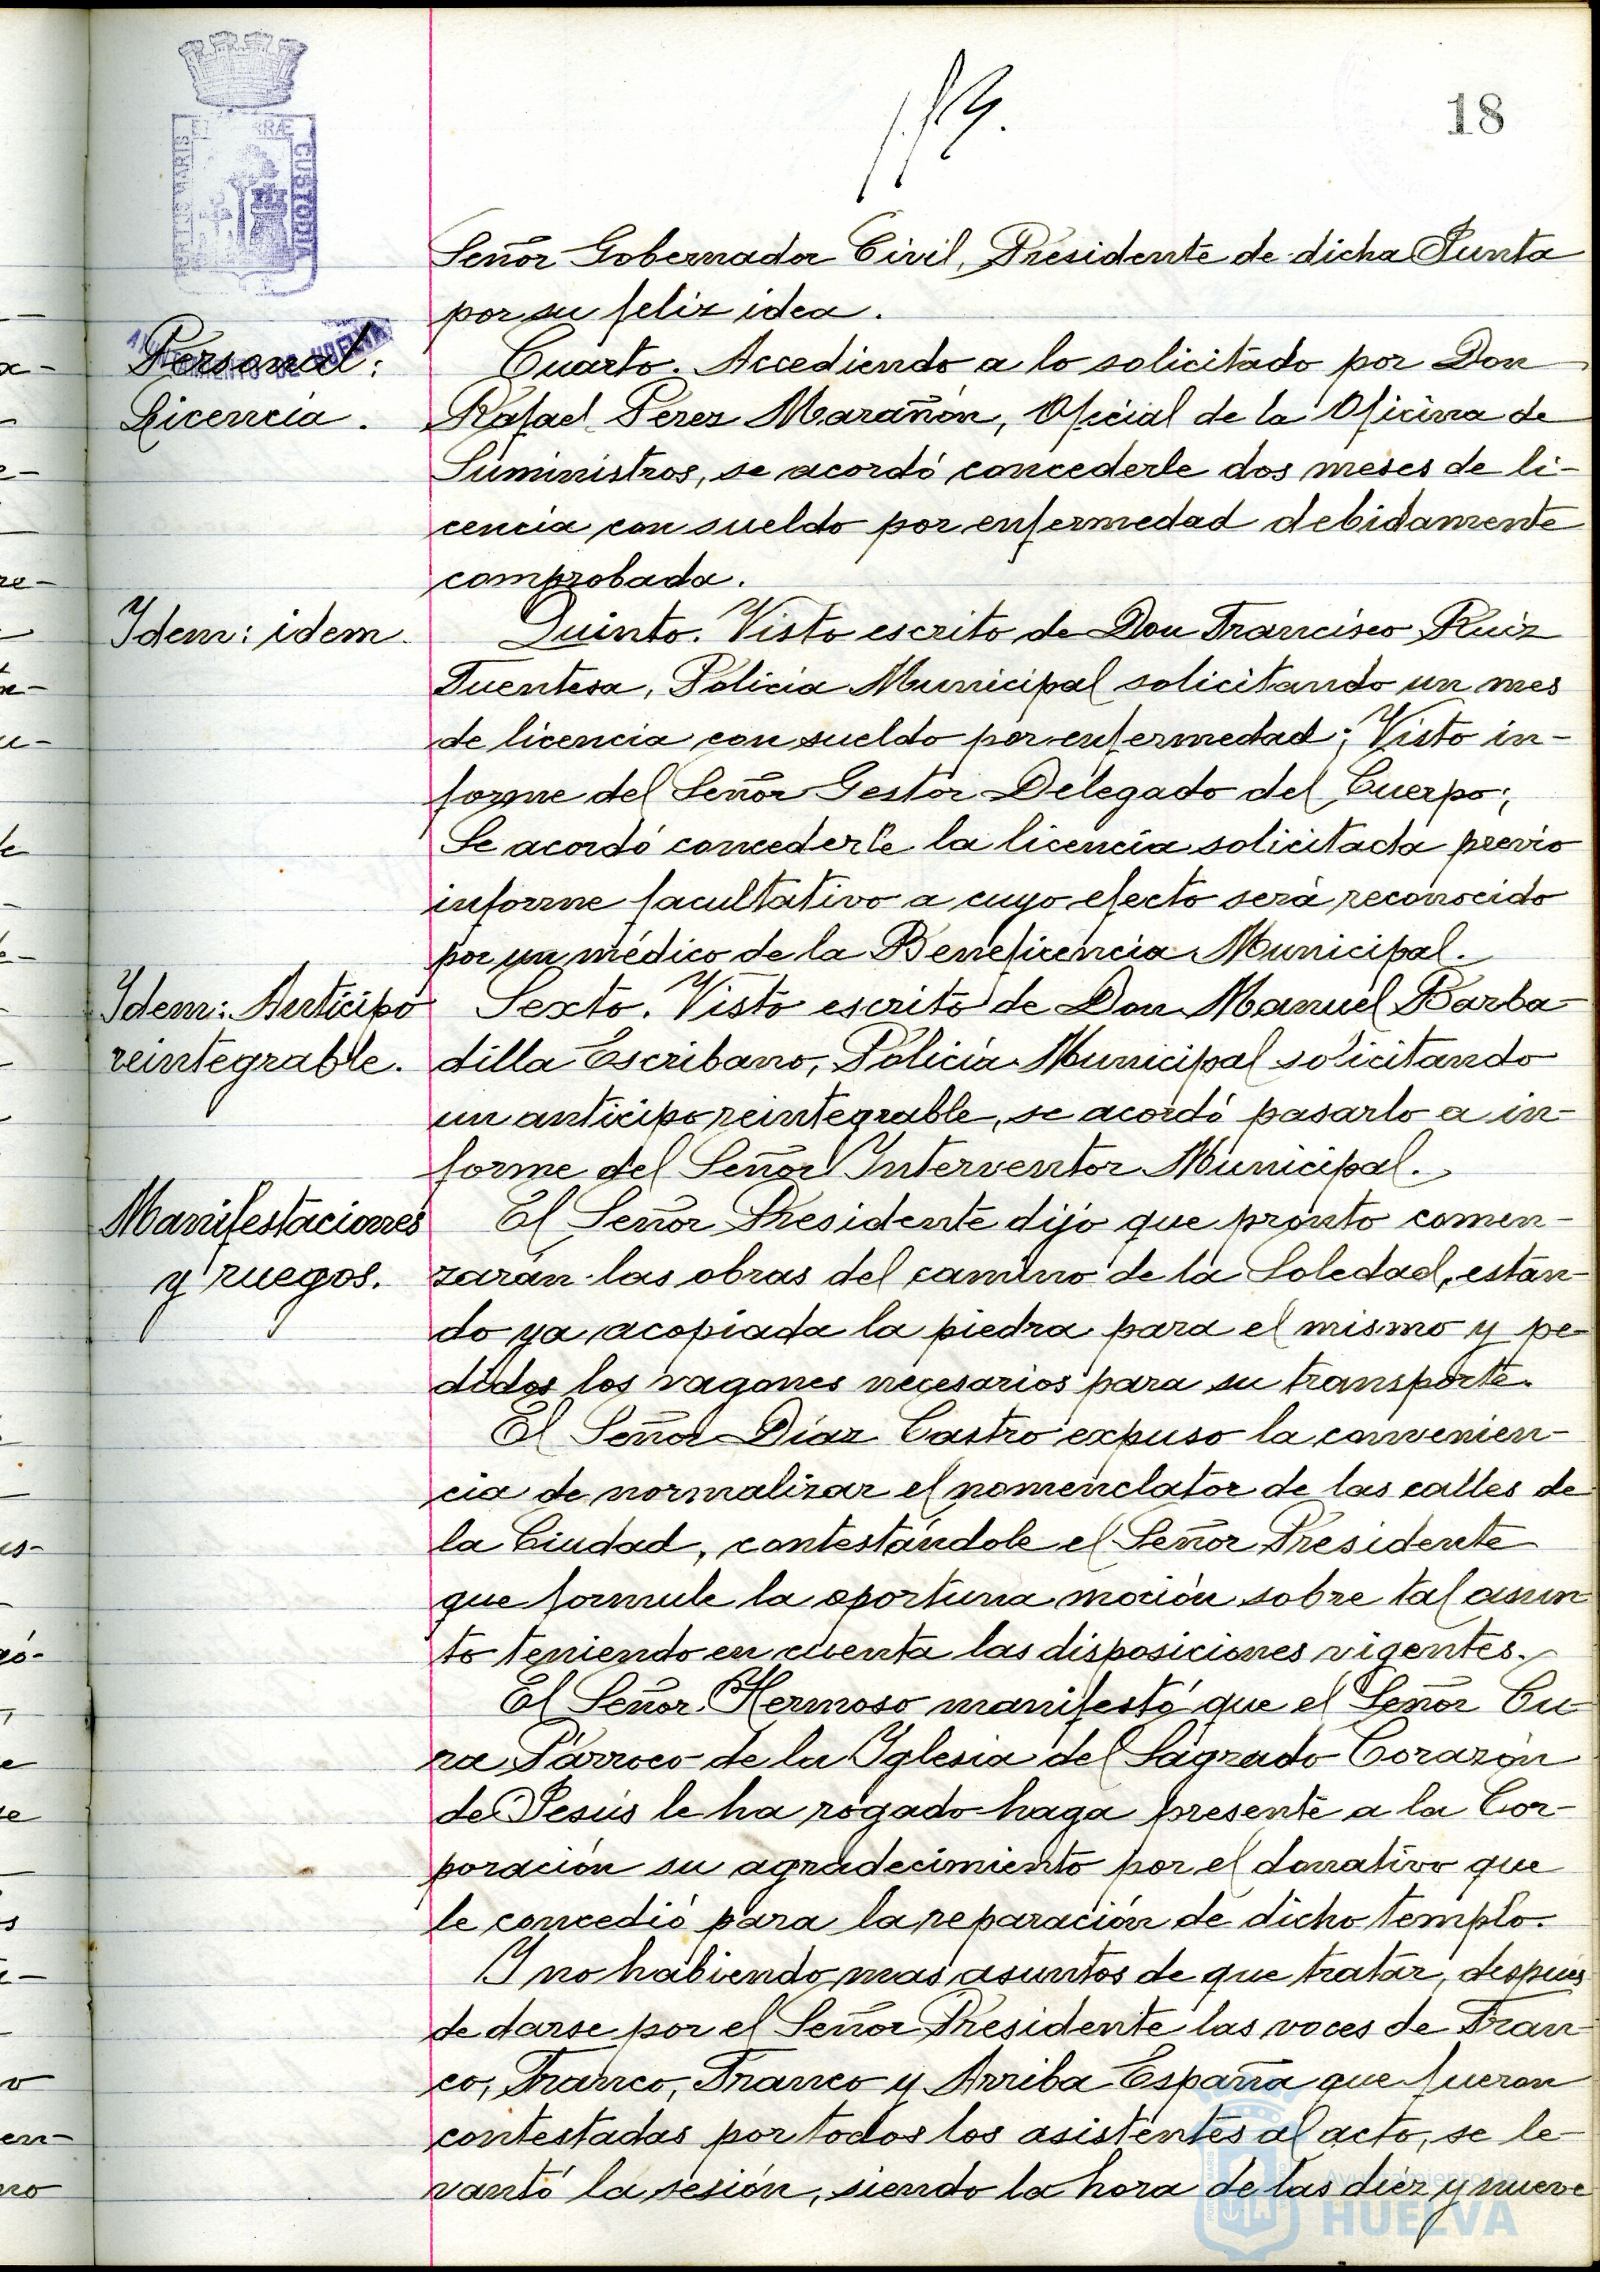 18
Señor Gobernador Civil, Presidente de dicha Junta
por su feliz idea.
Personal:
Licencia.
Cuarto. Accediendo a lo solicitado por Don
Rafael Perez Marañón, Oficial de la Oficina de
Suministros, se acordó concederle dos meses de li-
cencia con sueldo por enfermedad debidamente
comprobada.
Idem: idem.
Quinto. Visto escrito de Don Francisco Ruiz
Fuentesa, Policia Municipal solicitando un mes
de licencia con sueldo por enfermedad; Visto in-
forme del Señor Gestor Delegado del Cuerpo;
Se acordó concederle la licencia solicitada previo
informe facultativo a cuyo efecto será reconocido
por un médico de la Beneficencia Municipal.
Idem: Anticipo
reintegrable.
Sexto. Visto escrito de Don Manuel Barba-
dilla Escribano, Policía Municipal solicitando
un anticipo reintegrable, se acordó pasarlo a in-
forme del Señor Interventor Municipal.
Manifestaciones
y ruegos.
El Señor Presidente dijo que pronto comen-
zarán las obras del camino de la Soledad, estan-
do ya acopiada la piedra para el mismo y pe-
didos los vagones necesarios para su transporte.
El Señor Díaz Castro expuso la convenien-
cia de normalizar el nomenclator de las calles de
la Ciudad, contestándole el Señor Presidente
que formule la oportuna moción sobre tal asun
to teniendo en cuenta las disposiciones vigentes.
El Señor Hermoso manifestó que el Señor Cu-
ra Párroco de la Iglesia del Sagrado Corazón
de Jesús le ha rogado haga presente a la Cor-
poración su agradecimiento por el donativo que
le concedió para la reparación de dicho templo.
Y no habiendo mas asuntos de que tratar, después
de darse por el Señor Presidente las voces de Fran-
co, Franco, Franco y Arriba España que fueron
contestadas por todos los asistentes al acto, se le-
vantó la sesión, siendo la hora de las diez y nueve
Ayuntamiento de
HUELVA